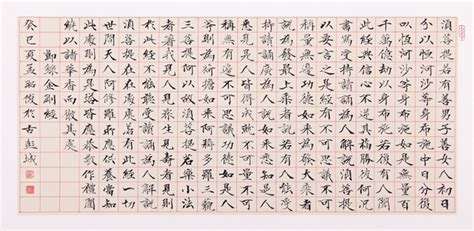 須菩提若有善男子善女人初日
分以恒河沙等身布施中日分復
以恒河沙等身布施後日分亦以
恒河沙等身布施如是無量百千
萬億劫以身布施若復有人聞
此經典信心不逆其福勝彼何況
書寫受持讀誦為人解說須菩提
以要言之是經有不可思議不可
稱量無邊功德如來為發大乘者
說為發最上乘者說若有人能受
持讀誦廣為人說如來悉知是人
悉見是人皆得成就不可量不可
稱無有邊不可思議功德如是人
等則為荷擔如來阿耨多羅三藐
三菩提何以故須菩提若樂小法
者著我見人見眾生見壽者見則
於此經不能聽受讀誦為人解說
須菩提在在處處若有此經一切
世間天人阿修羅所應供養當知
此處則為是塔皆應恭敬作禮圍
繞以諸華香而散其處
節錄金剛經
癸巳夏孟於古彭城